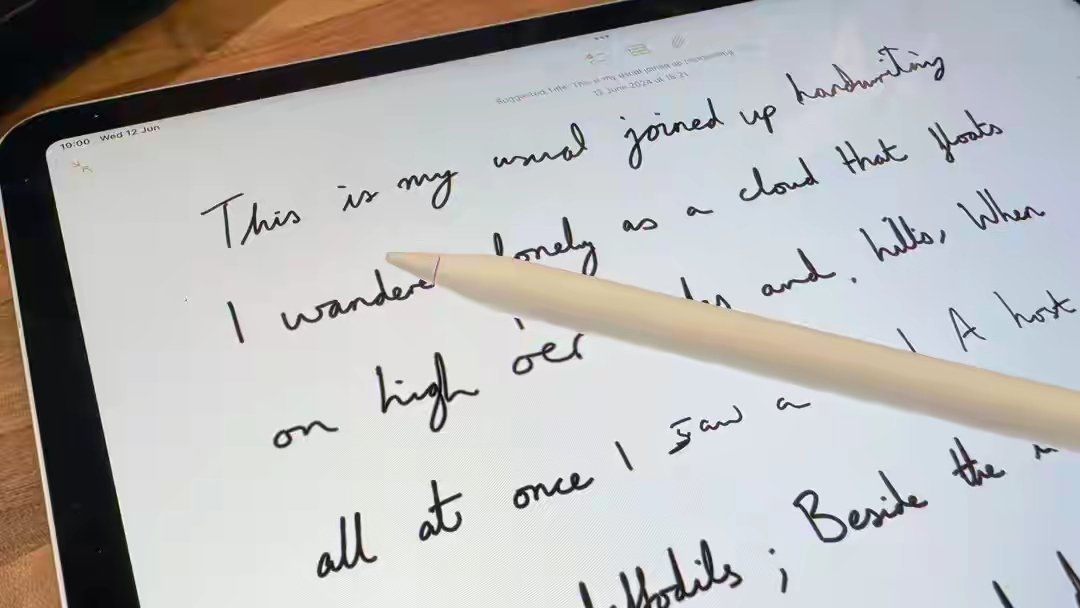 19:00 Wed 12 Jun
Suggested Title: This is my usual joined up handwriting
12 June 2024 at 18:21
This is my usual joined up handwriting
I wandere lonely as a cloud that floats
on high o'er and hills, When
all at once I saw a A host
Beside the